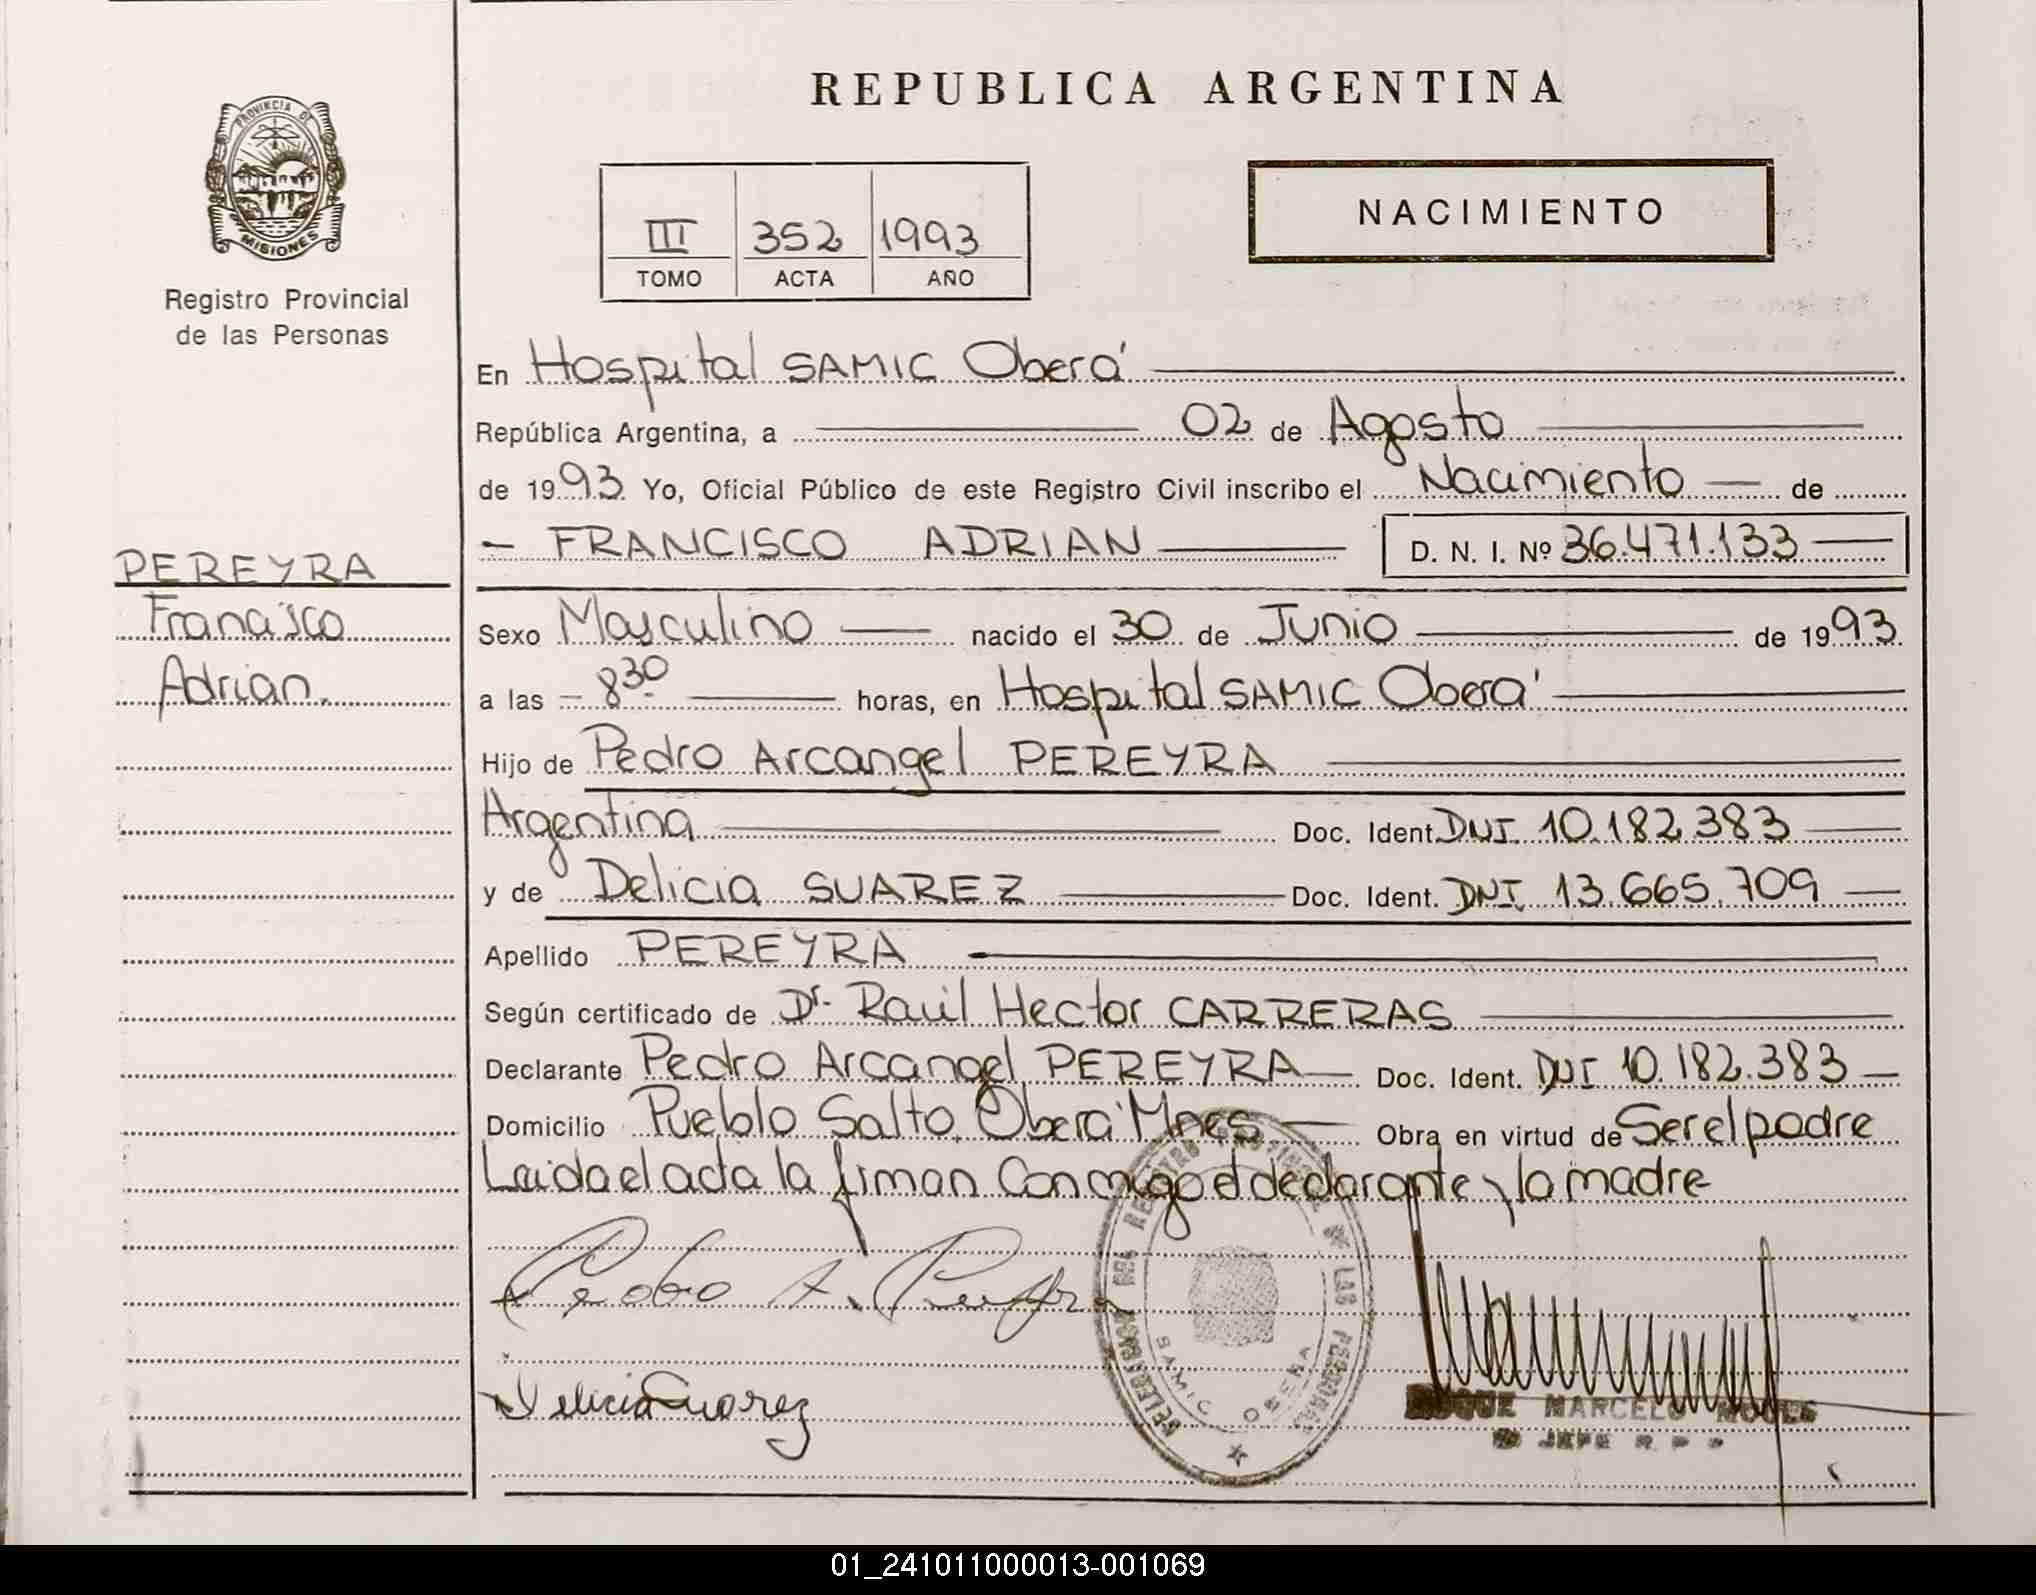 REPUBLICA ARGENTINA
PROVINCIA DE
MISIONES
Registro Provincial
de las Personas
III 352 1993
TOMO ACTA AÑO
NACIMIENTO
En Hospital SAMIC Oberá
República Argentina, a 02 de Agosto
de 1993 Yo, Oficial Público de este Registro Civil inscribo el Nacimiento de
FRANCISCO ADRIAN D. N. I. Nº 36.471.133
PEREYRA
Francisco
Adrian.
Sexo Masculino nacido el 30 de Junio de 1993
a las 8 30 horas, en Hospital SAMIC Oberá
Hijo de Pedro Arcangel PEREYRA
Argentina Doc. Ident. DNI 10.182.383
y de Delicia SUAREZ Doc. Ident. DNI 13.665.709
Apellido PEREYRA
Según certificado de Dr. Raúl Hector CARRERAS
Declarante Pedro Arcangel PEREYRA Doc. Ident. DNI 10.182.383
Domicilio Pueblo Salto. Oberá Mnes Obra en virtud de Ser el padre
Leida el acta la firman Conmigo el declarante y la madre
Pedro A. Pereyra
Delicia Suarez
DELEGACION DEL REGISTRO PROVINCIAL DE LAS PERSONAS
SAMIC OBERA
ROQUE MARCELO
JEFE R. P.
01_241011000013-001069